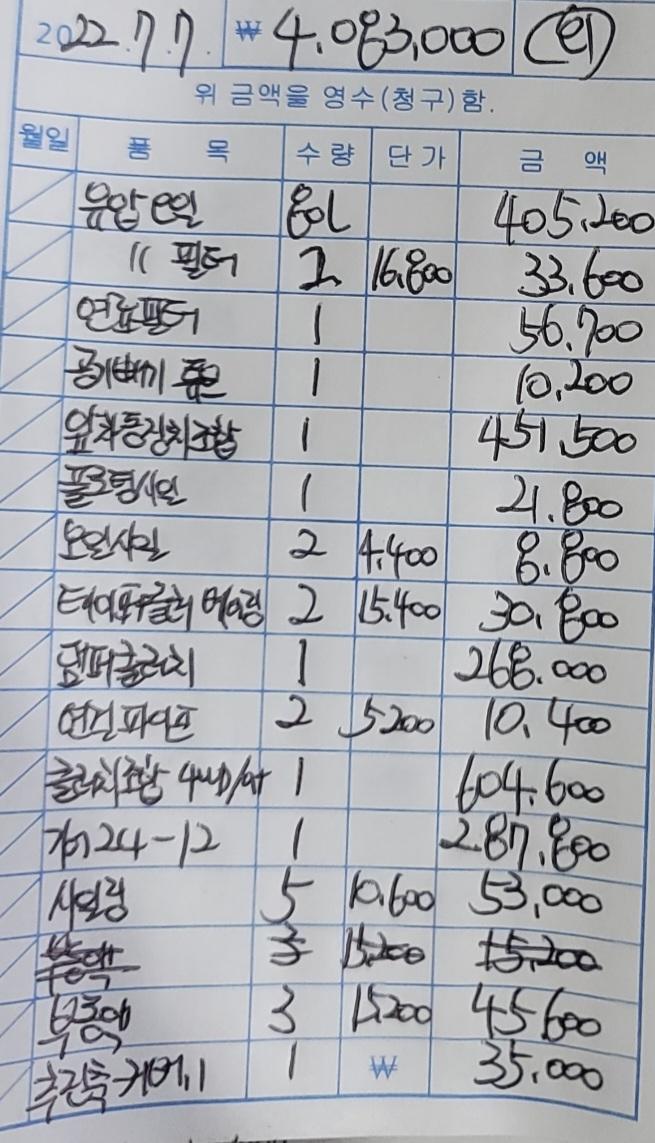 2022.7.7. ₩ 4.083,000 (인)
위 금액을 영수(청구)함.
월일 품 목 수량 단가 금 액
유압오일 80L 405.200
〃 필터 2 16.800 33.600
연료필터 1 56.700
공기빼기 1 10.200
앞차동장치조합 1 451.500
플로팅시일 1 21.800
오일시일 2 4.400 8.800
테이퍼롤러 베어링 2 15.400 30.800
댐퍼클러치 1 268.000
연결파이프 2 5200 10.400
클러치조합 4WD/QT 1 604.600
기어 24-12 1 287.800
시일링 5 10.600 53,000
부동액 3 15.200 15.200
부동액 3 15200 45600
추진축커버.1 1 ₩ 35.000